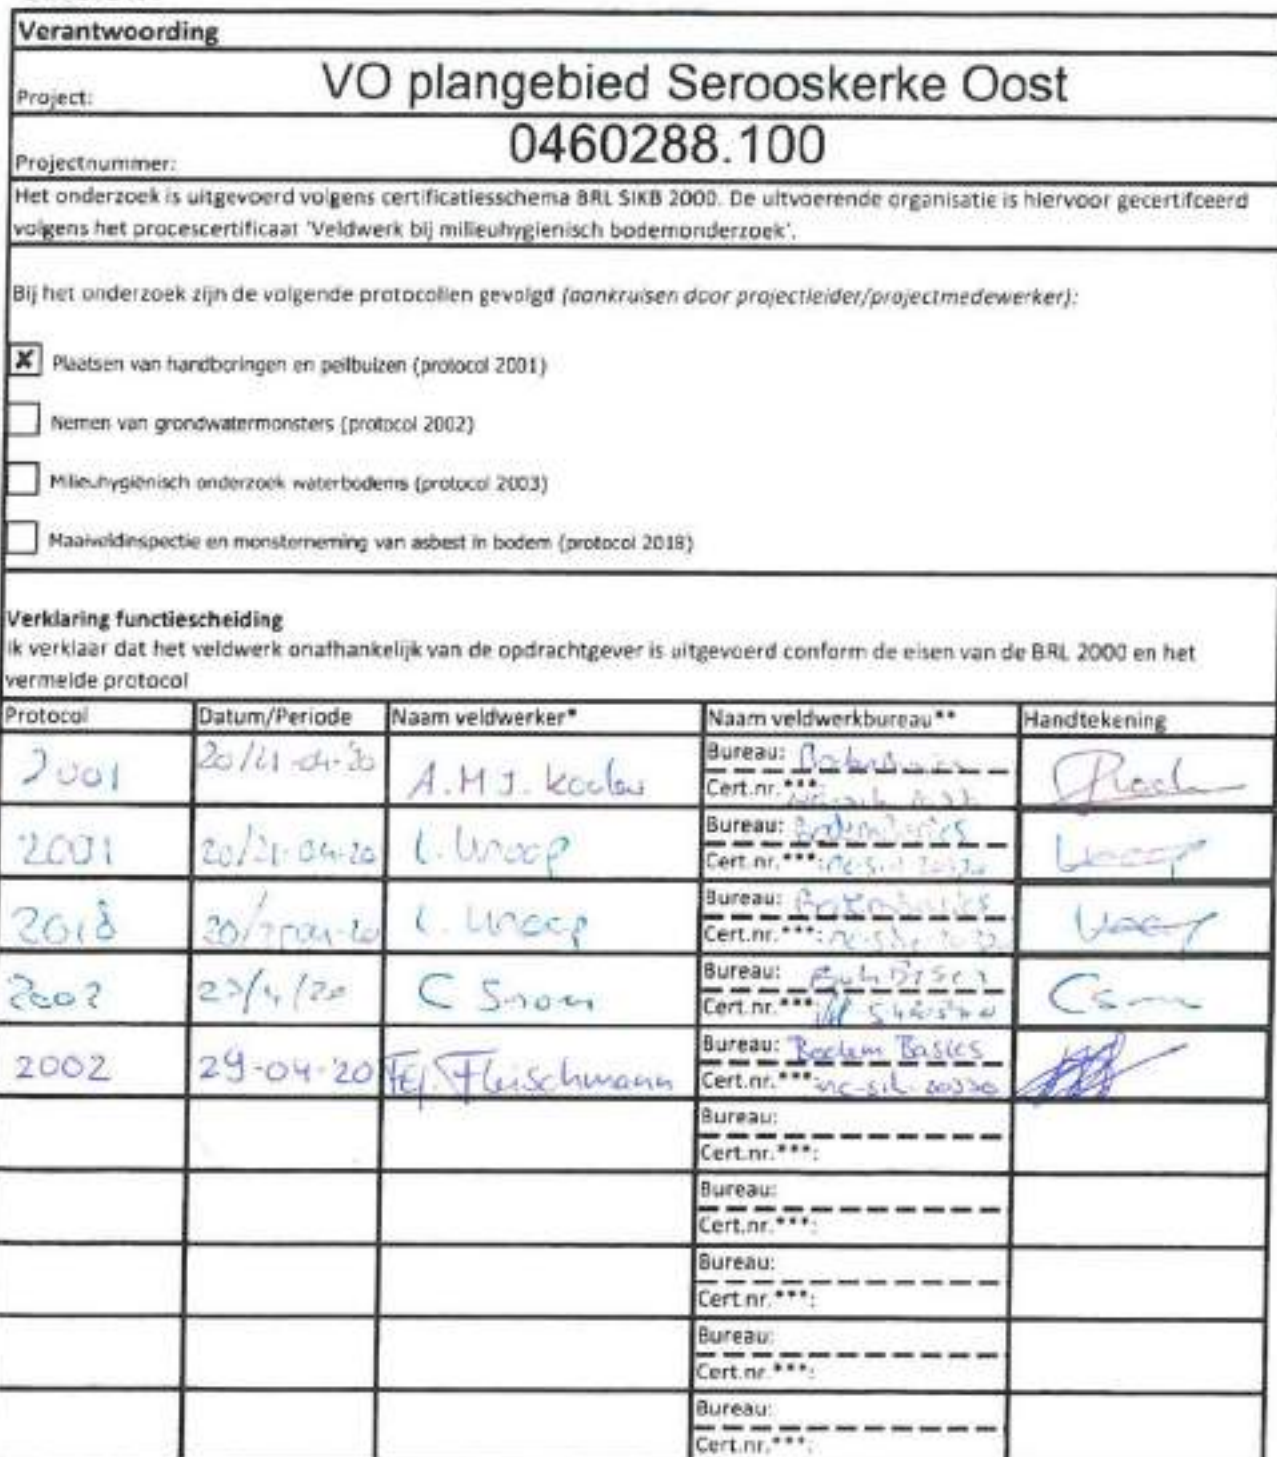 Verantwoording
Project: VO plangebied Serooskerke Oost
Projectnummer: 0460288.100
Het onderzoek is uitgevoerd volgens certificatiesschema BRL SIKB 2000. De uitvoerende organisatie is hiervoor gecertifceerd
volgens het procescertificaat 'Veldwerk bij milieuhygienisch bodemonderzoek'.
Bij het onderzoek zijn de volgende protocollen gevolgd (aankruisen door projectleider/projectmedewerker):
X Plaatsen van handboringen en peilbuizen (protocol 2001)
Nemen van grondwatermonsters (protocol 2002)
Milieuhygiënisch onderzoek waterbodems (protocol 2003)
Maaiveldinspectie en monsterneming van asbest in bodem (protocol 2018)
Verklaring functiescheiding
Ik verklaar dat het veldwerk onafhankelijk van de opdrachtgever is uitgevoerd conform de eisen van de BRL 2000 en het
vermelde protocol
Protocol Datum/Periode Naam veldwerker* Naam veldwerkbureau** Handtekening
2001 20/21-04-20 A.M.J. Bureau:
Cert.nr.***:
2001 20/21-04-20 L. Bureau:
Cert.nr.***:
2018 20/21-04-20 L. Bureau:
Cert.nr.***:
2002 C Bureau:
Cert.nr.***:
2002 29-04-20 Fleischmann Bureau: Bodem Basics
Cert.nr.***:
Bureau:
Cert.nr.***:
Bureau:
Cert.nr.***:
Bureau:
Cert.nr.***:
Bureau:
Cert.nr.***:
Bureau:
Cert.nr.***: